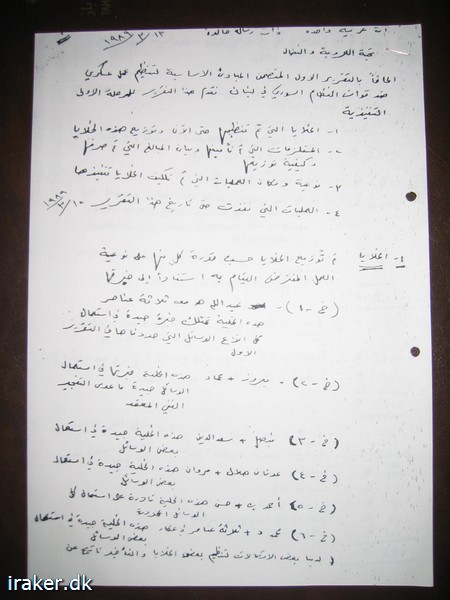 أمة عربية واحدة ذات رسالة خالدة ١٩٨٦/٣/١٣
تحية العروبة والنضال
الحاقاً بالتقرير الاول المتضمن المبادئ الاساسية لتنظيم عمل عسكري
ضد قوات النظام السوري في لبنان نقدم هذا التقرير للمرحلة الاولى
التنفيذية
١- الخلايا التي تم تنظيمها حتى الآن وتوزيع هذه الخلايا
٢- المستلزمات التي تم تأمينها وبيان المبالغ التي تم صرفها
وكيفية توزيعها
٣- نوعية ومكان العمليات التي تم تكليف الخلايا تنفيذها
٤- العمليات التي نفذت حتى تاريخ هذا التقرير ١٩٨٦/٣/١٠
١- الخلايا تم توزيع الخلايا حسب قدرة كل منها على نوعية
العمل المفترض القيام به استناداً الى خبرتها
(خ-١)- عبدالله معه ثلاثة عناصر
هذه الخلية تمتلك خبرة جيدة في استعمال
كل انواع الوسائل التي حددناها في التقرير
الاول
(خ-٢)- فيروز + عماد هذه الخلية خبرتها في استعمال
الوسائل جيدة ما عدى التفجير
الفني المعقد
(خ-٣) فيصل + سعدالدين هذه الخلية جيدة في استعمال
بعض الوسائل
(خ-٤)- عدنان هلال + مروان هذه الخلية جيدة في استعمال
بعض الوسائل
(خ-٥)- أحمد + حسن هذه الخلية قادرة على استعمال كل
الوسائل
(خ-٦)- محمد د + ثلاثة عناصر في عكار هذه الخلية جيدة في استعمال
بعض الوسائل
لدينا بعض الاحتمالات لتنظيم بعض الخلايا والتأخير ناتج عن
iraker.dk